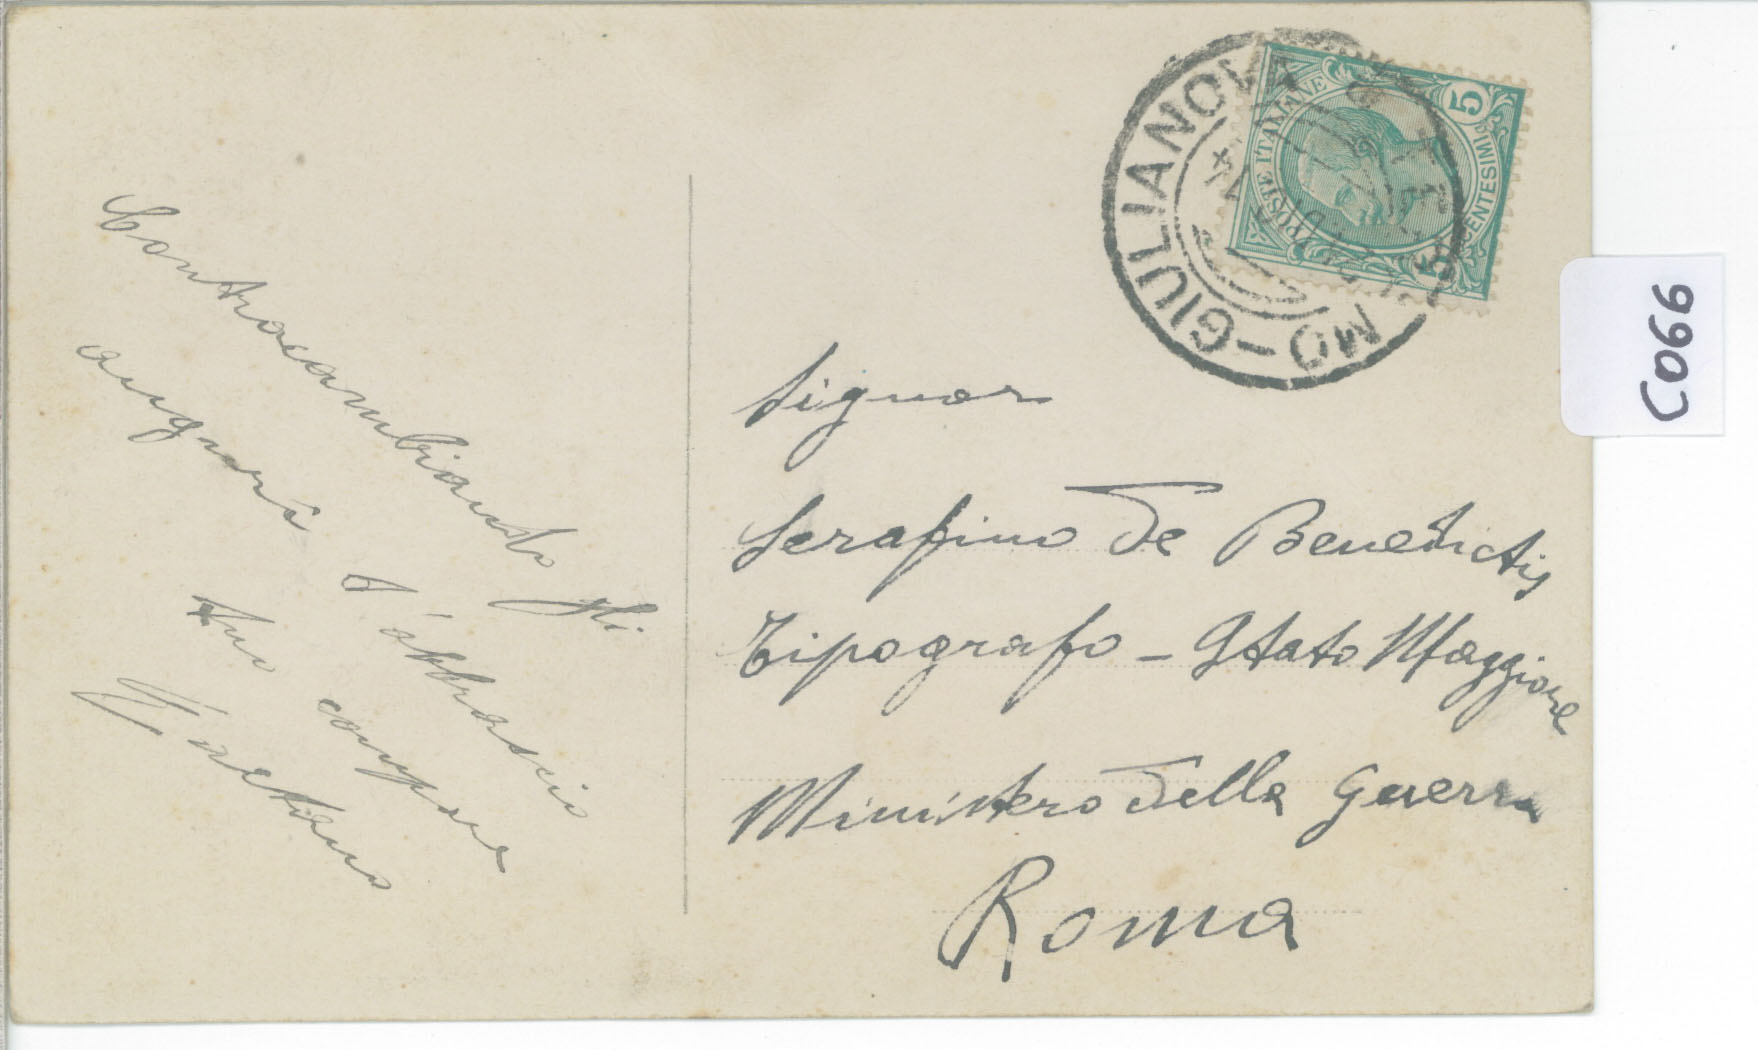 Contracambiando gli
auguri t'abbraccio
tuo compare
Gaetano
Signor
Serafino de Benedictis
Tipografo - Stato Maggiore
Ministero della Guerra
Roma
GIULIANOVA
POSTE ITALIANE
5
CENTESIMI
5
C066